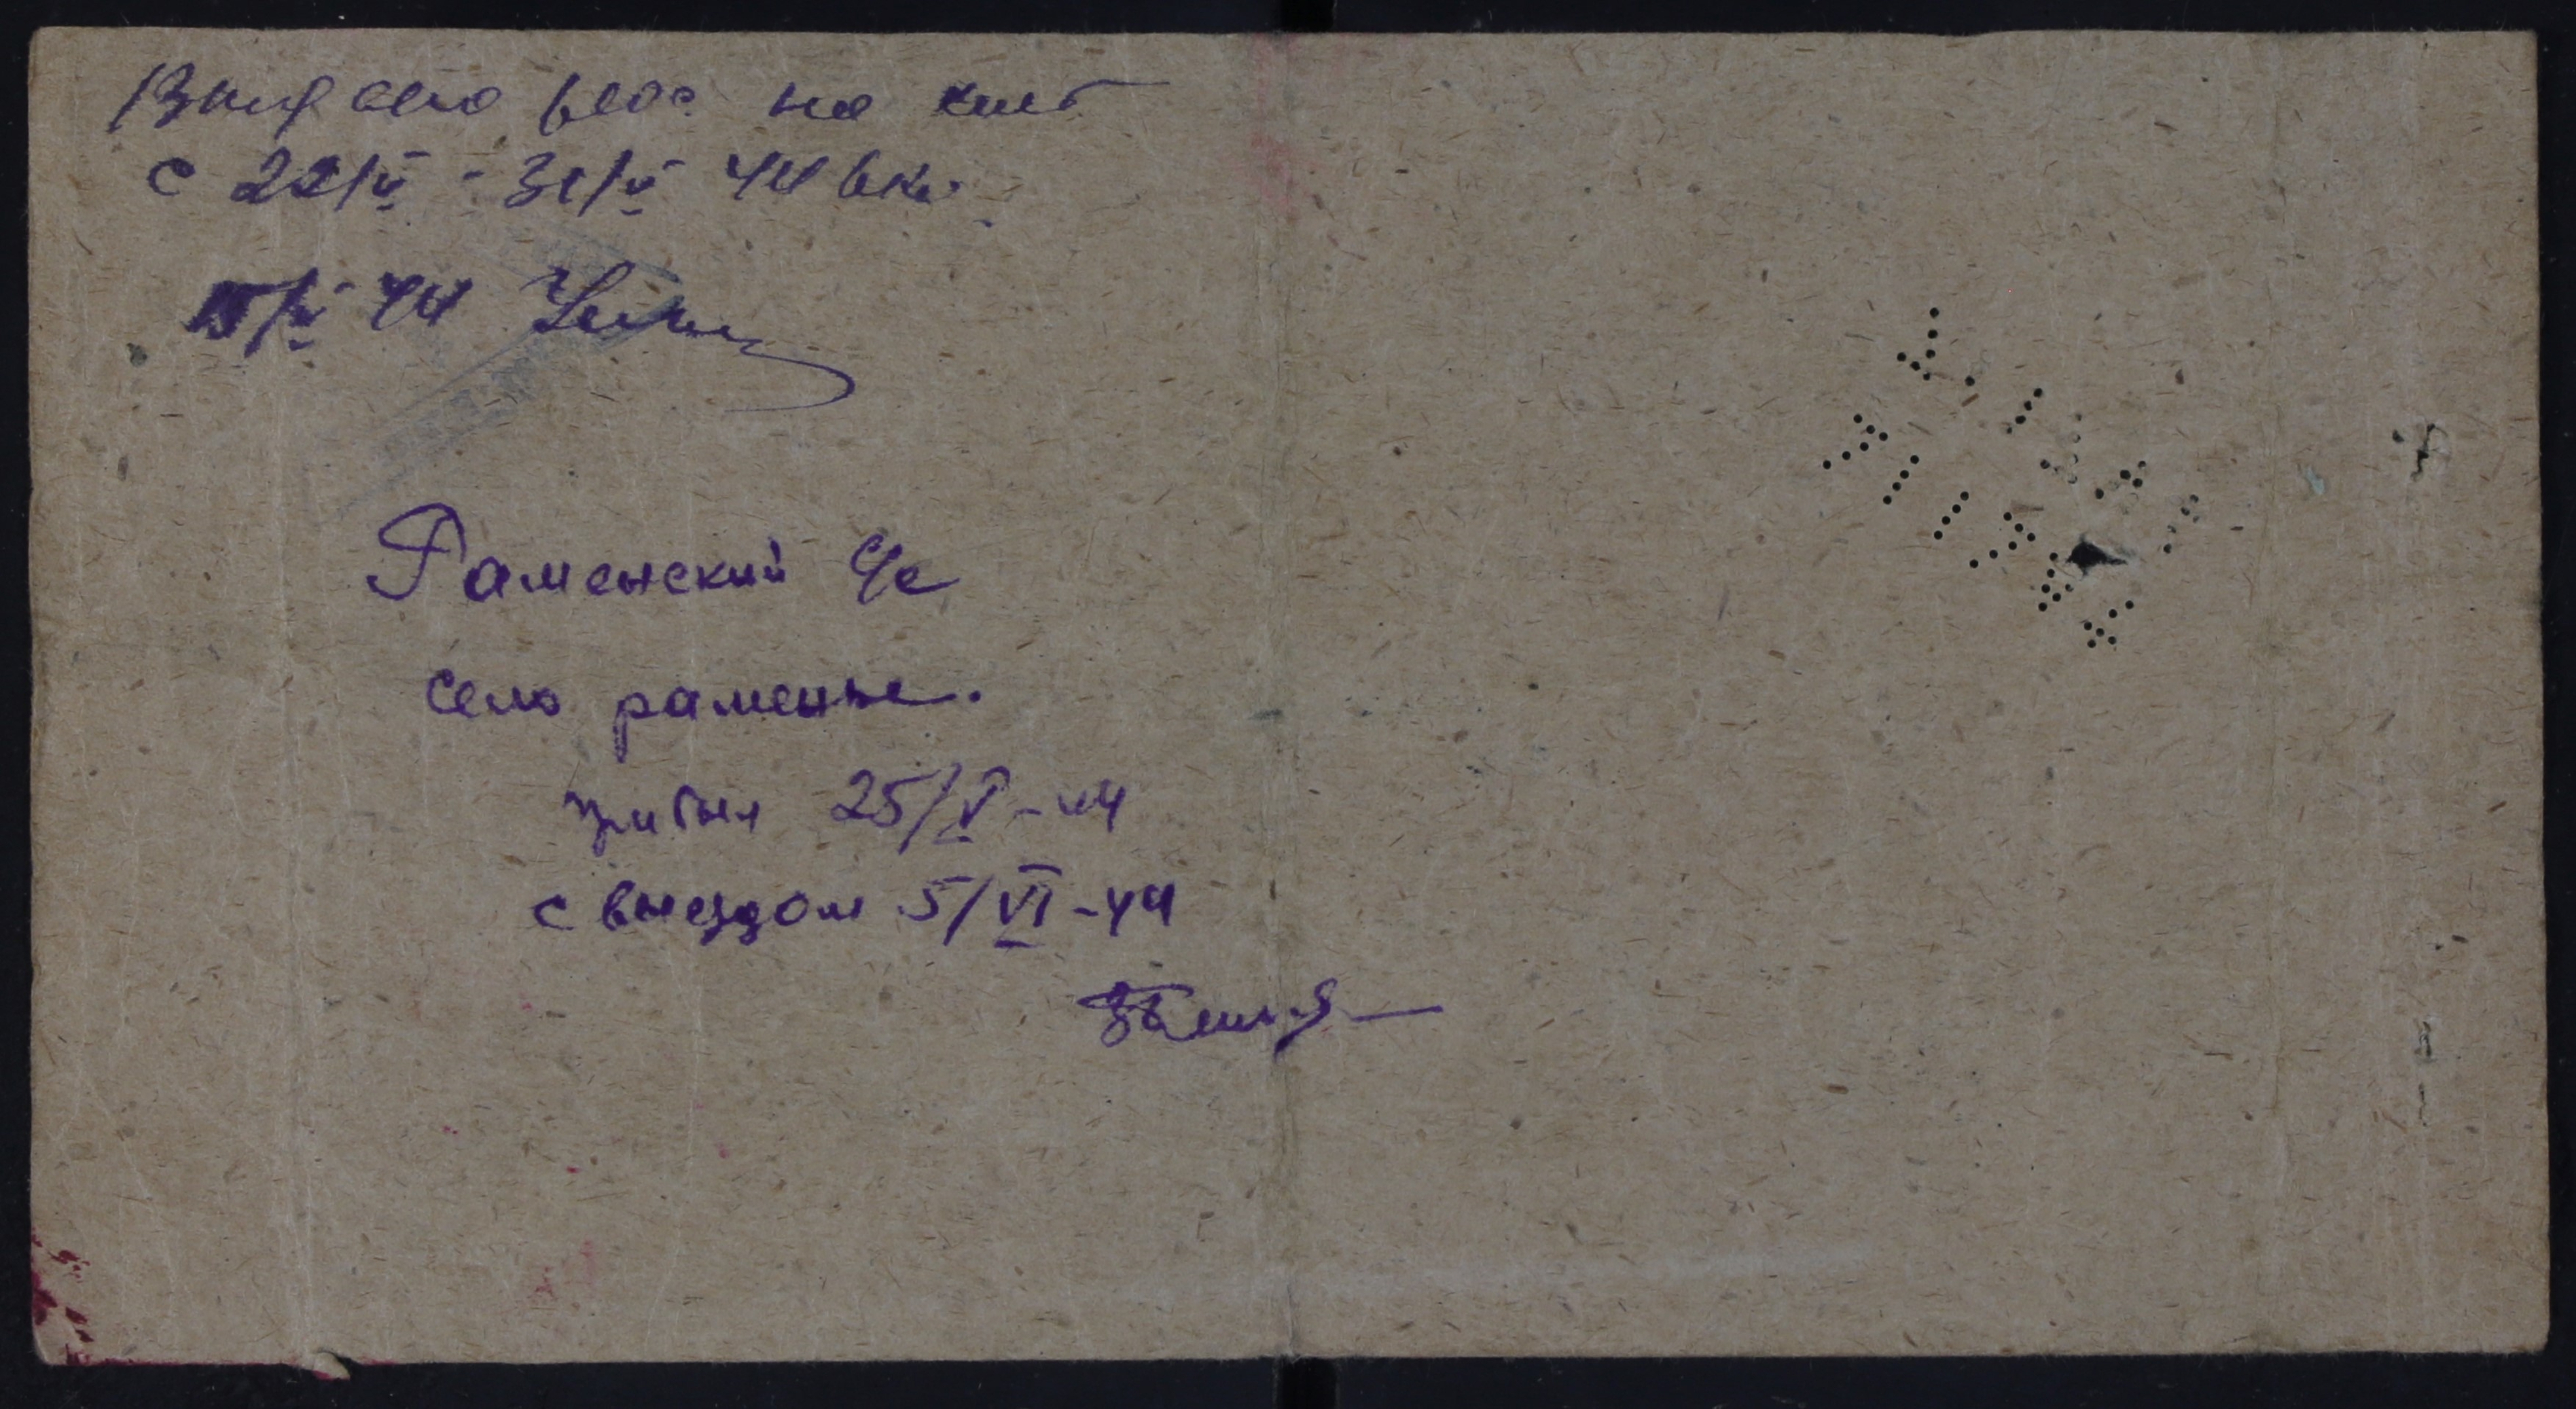 Выдано на хлеб
с 22/V - 31/V 44 вкл.
/V 44
Раменский с/с
село раменье.
прибыл 25/V-44
с выездом 5/VI-44